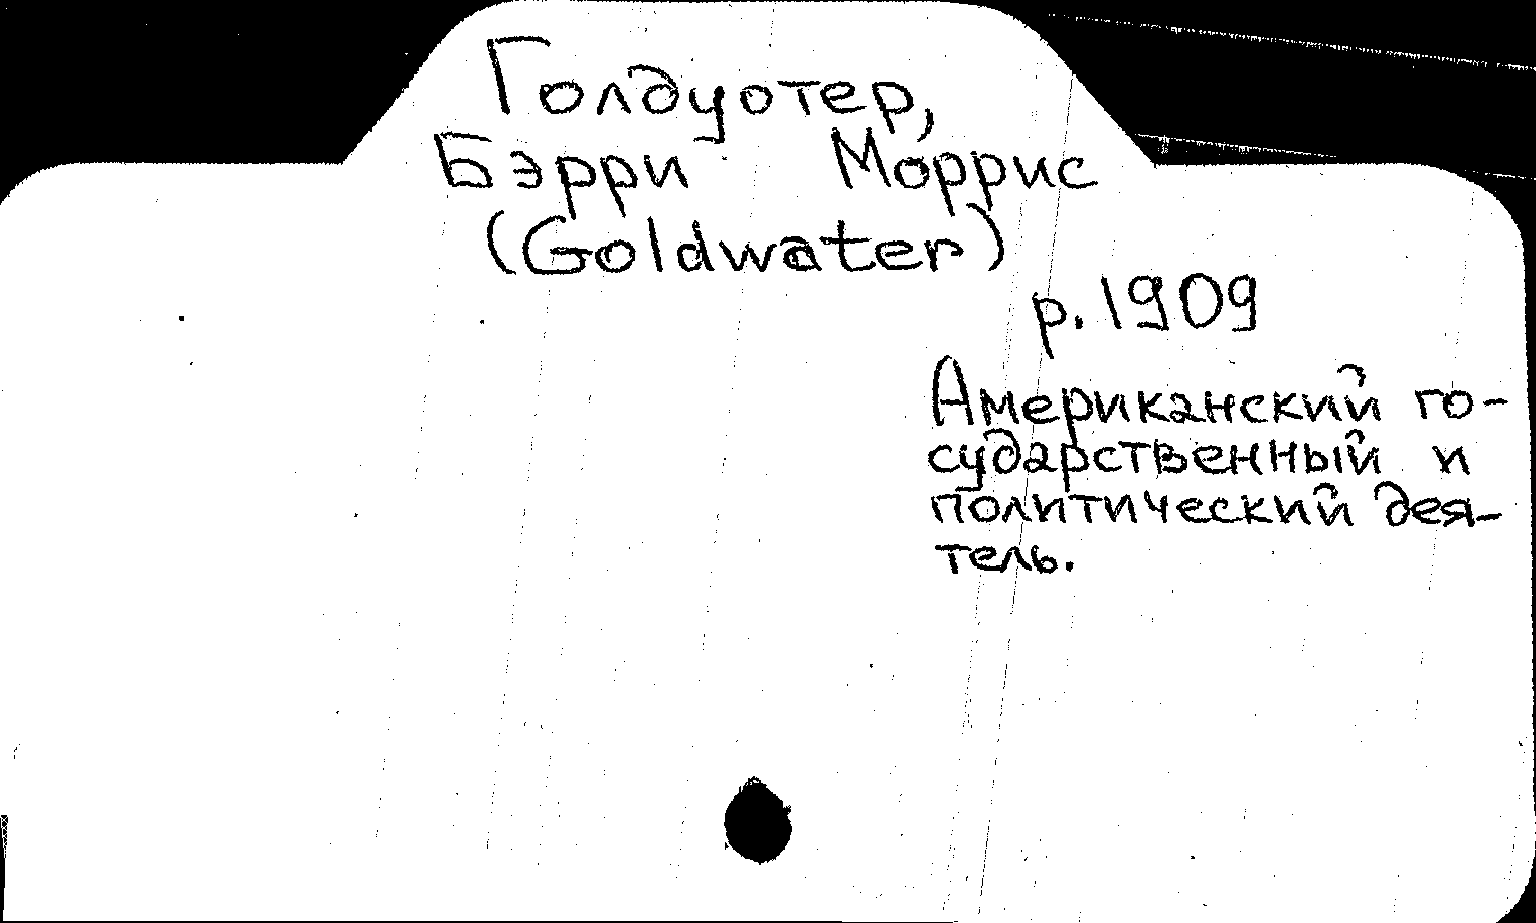 Голдуотер,
Бэрри Моррис
(Goldwater)
р. 1909
Американский го-
сударственный и
политический дея-
тель.